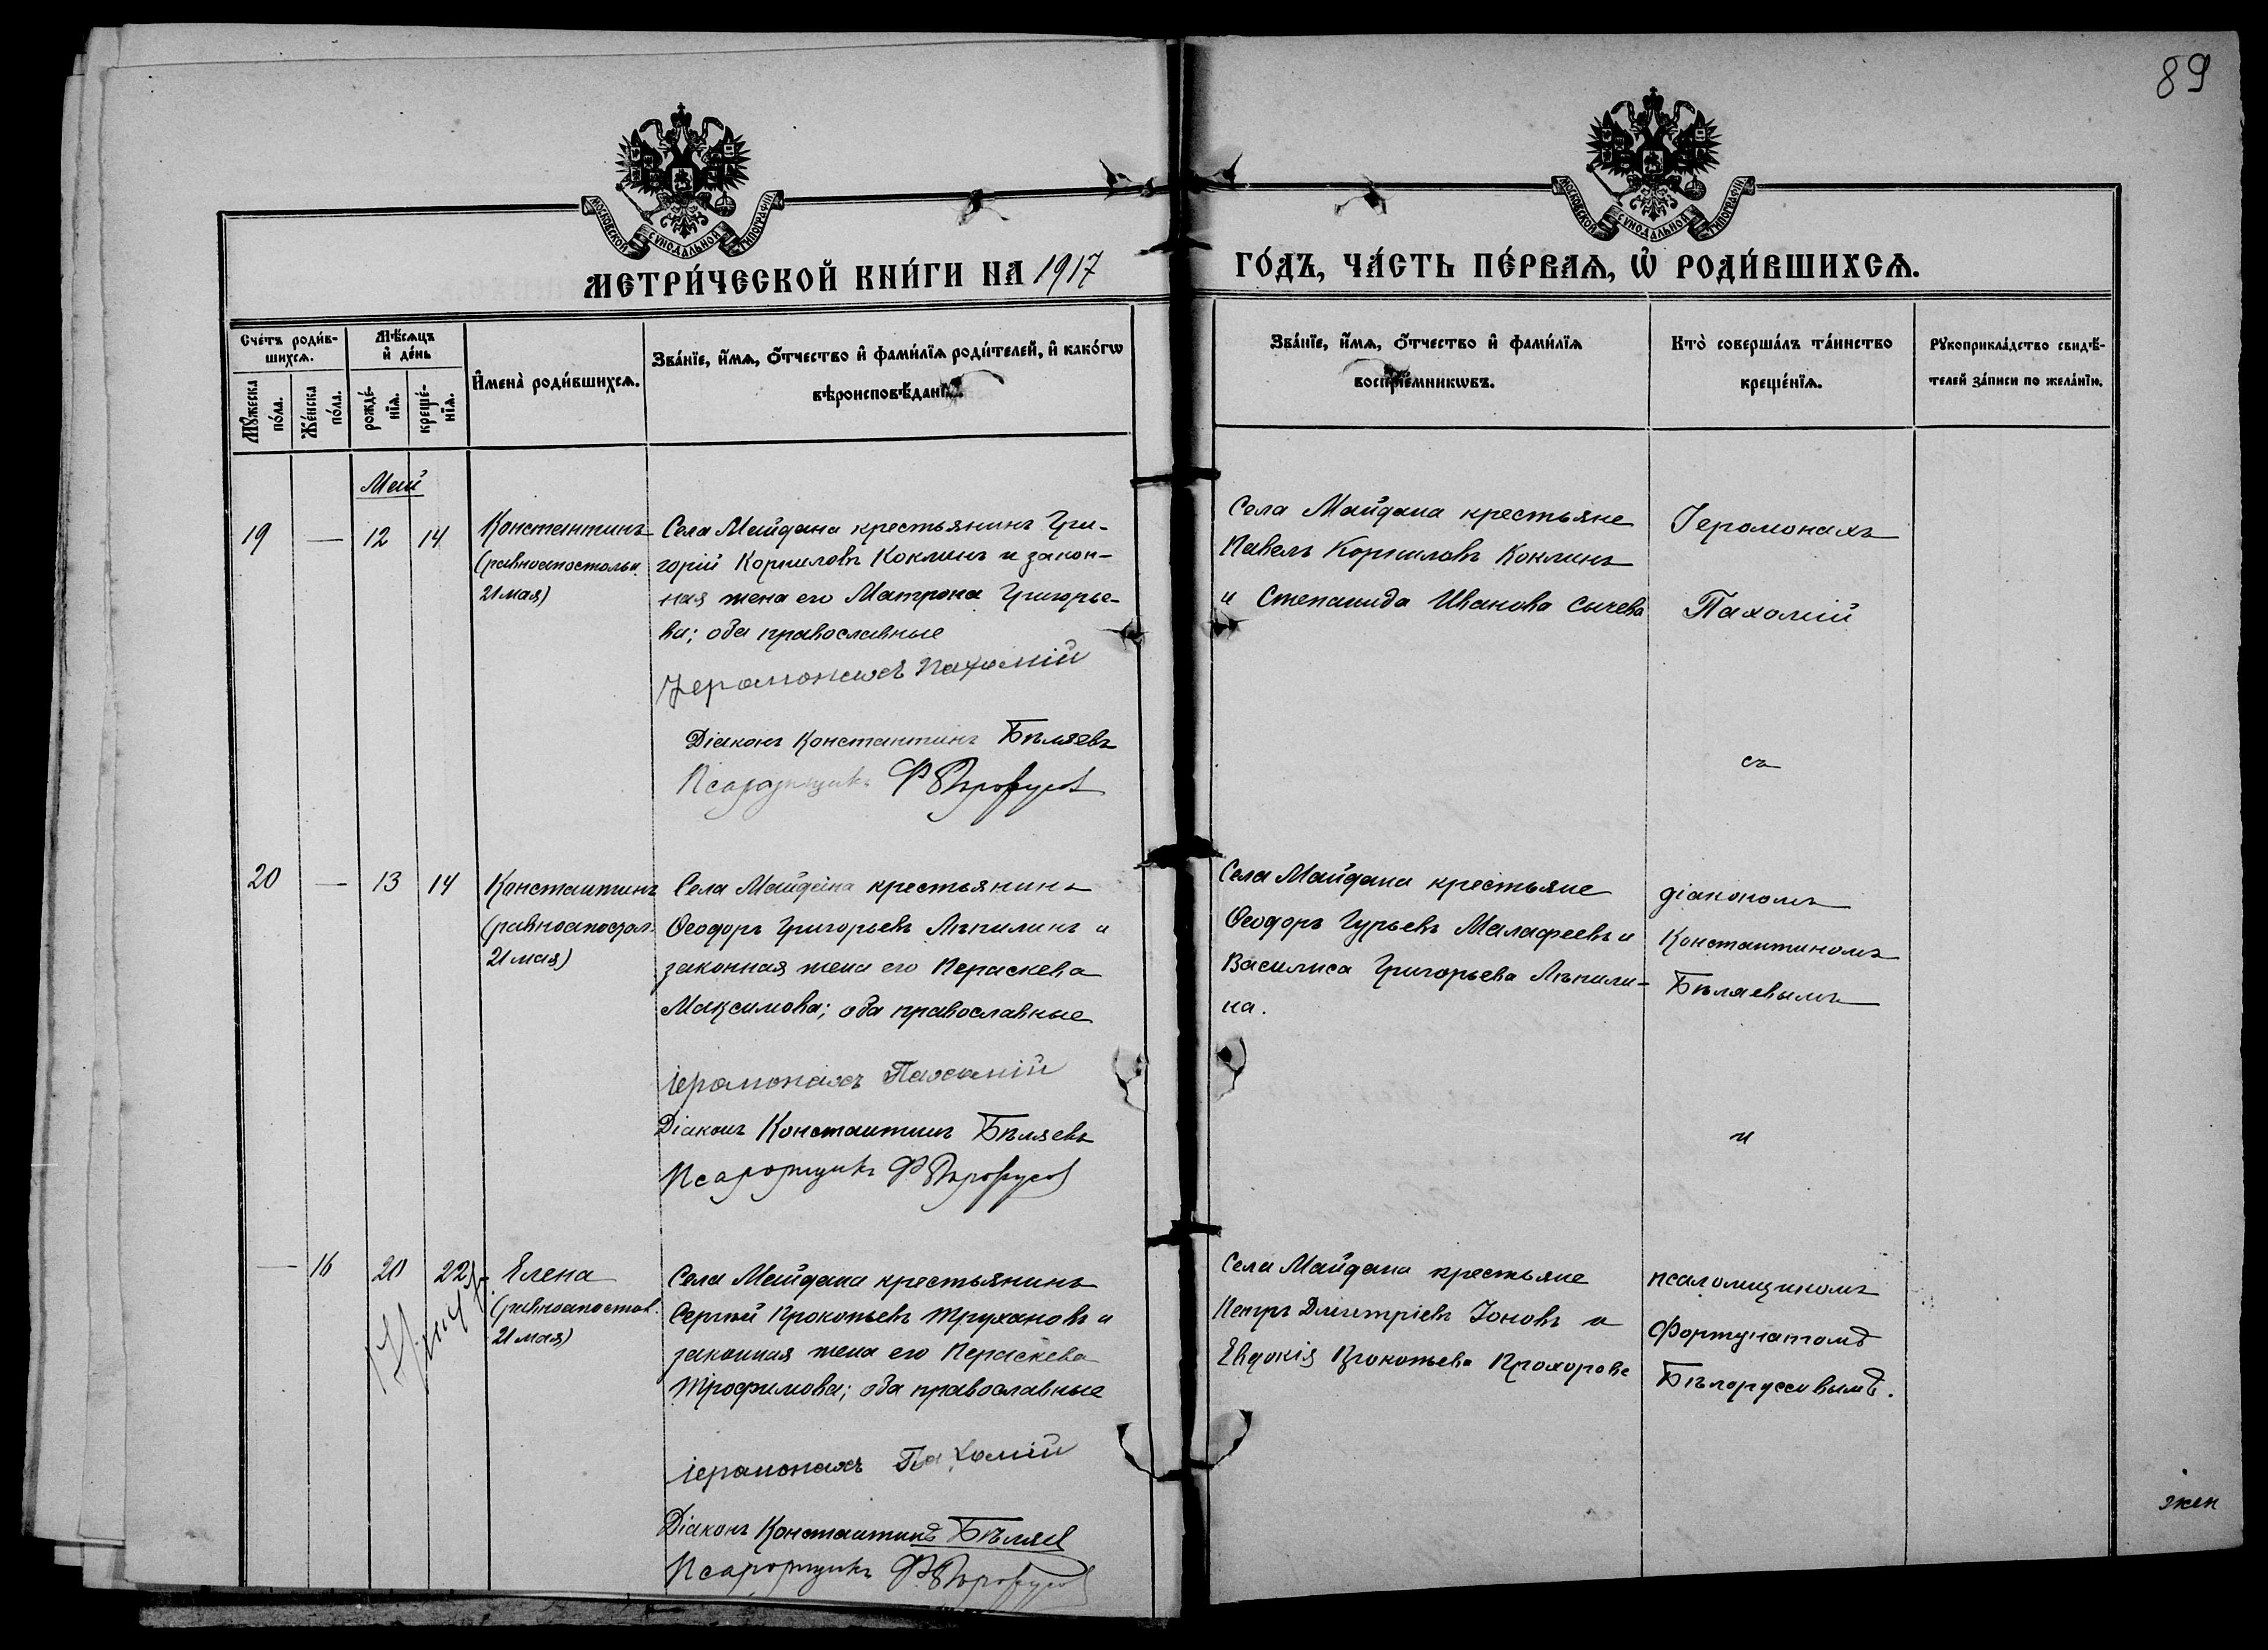 89
МОСКОВСКОЙ СѴНОДАЛЬНОЙ ТИПОГРАФІИ
МОСКОВСКОЙ СѴНОДАЛЬНОЙ ТИПОГРАФІИ
МЕТРИ́ЧЕСКОЙ КНИ́ГИ НА 1917
ГО́ДЪ, ЧА́СТЬ ПЕ́РВАѦ, Ѡ҆ РОДИ́ВШИХСѦ.
Сче́тъ роди́в-
шихсѧ.
Мꙋ́жеска
по́ла.
Же́нска
по́ла.
Мѣ́сѧцъ
и҆ де́нь
рожде́-
нїѧ.
креще́-
нїѧ.
И҆мена̀ роди́вшихсѧ.
Зва́нїе, и҆́мѧ, ѻ҆́тчество и҆ фами́лїѧ роди́телей, и҆ како́гѡ
вѣроисповѣ́данїѧ.
Зва́нїе, и҆́мѧ, ѻ҆́тчество и҆ фами́лїѧ
воспрїе́мникѡвъ.
Кто̀ соверша́лъ та́инство
креще́нїѧ.
Рꙋкоприкла́дство свидѣ́-
телей за́писи по жела́нїю.
Май
19 — 12 14
Константинъ
(равноапостольн.
21 мая)
Села Майдана крестьянинъ Гри-
горій Корниловъ Коклинъ и закон-
ная жена его Матрона Григорье-
ва; оба православные
Іеромонахъ Пахомій
Діаконъ Константинъ Бѣляевъ
Псаломщикъ Ф Бѣлорусовъ
Села Майдана крестьяне
Павелъ Корниловъ Коклинъ
и Степанида Иванова Сычева
Іеромонахъ
Пахомій
съ
20 — 13 14
Константинъ
(равноапостол.
21 мая)
Села Майдана крестьянинъ
Ѳеодоръ Григорьевъ Лѣпилинъ и
законная жена его Параскева
Максимова; оба православные
Іеромонахъ Пахомій
Діаконъ Константинъ Бѣляевъ
Псаломщикъ Ф Бѣлорусовъ
Села Майдана крестьяне
Ѳеодоръ Гурьевъ Малафеевъ и
Василиса Григорьева Лѣпили-
на.
діакономъ
Константиномъ
Бѣляевымъ
и
— 16 20 22
Елена
(равноапостол.
21 мая)
Села Майдана крестьянинъ
Сергѣй Прокопьевъ Трухановъ и
законная жена его Параскева
Трофимова; оба православные
Іеромонахъ Пахомій
Діаконъ Константинъ Бѣляев
Псаломщикъ Ф Бѣлорусовъ
Села Майдана крестьяне
Петръ Димитріевъ Іоновъ и
Евдокія Прокопьева Прохорова
псаломщикомъ
Фортунатомъ
Бѣлоруссовымъ.